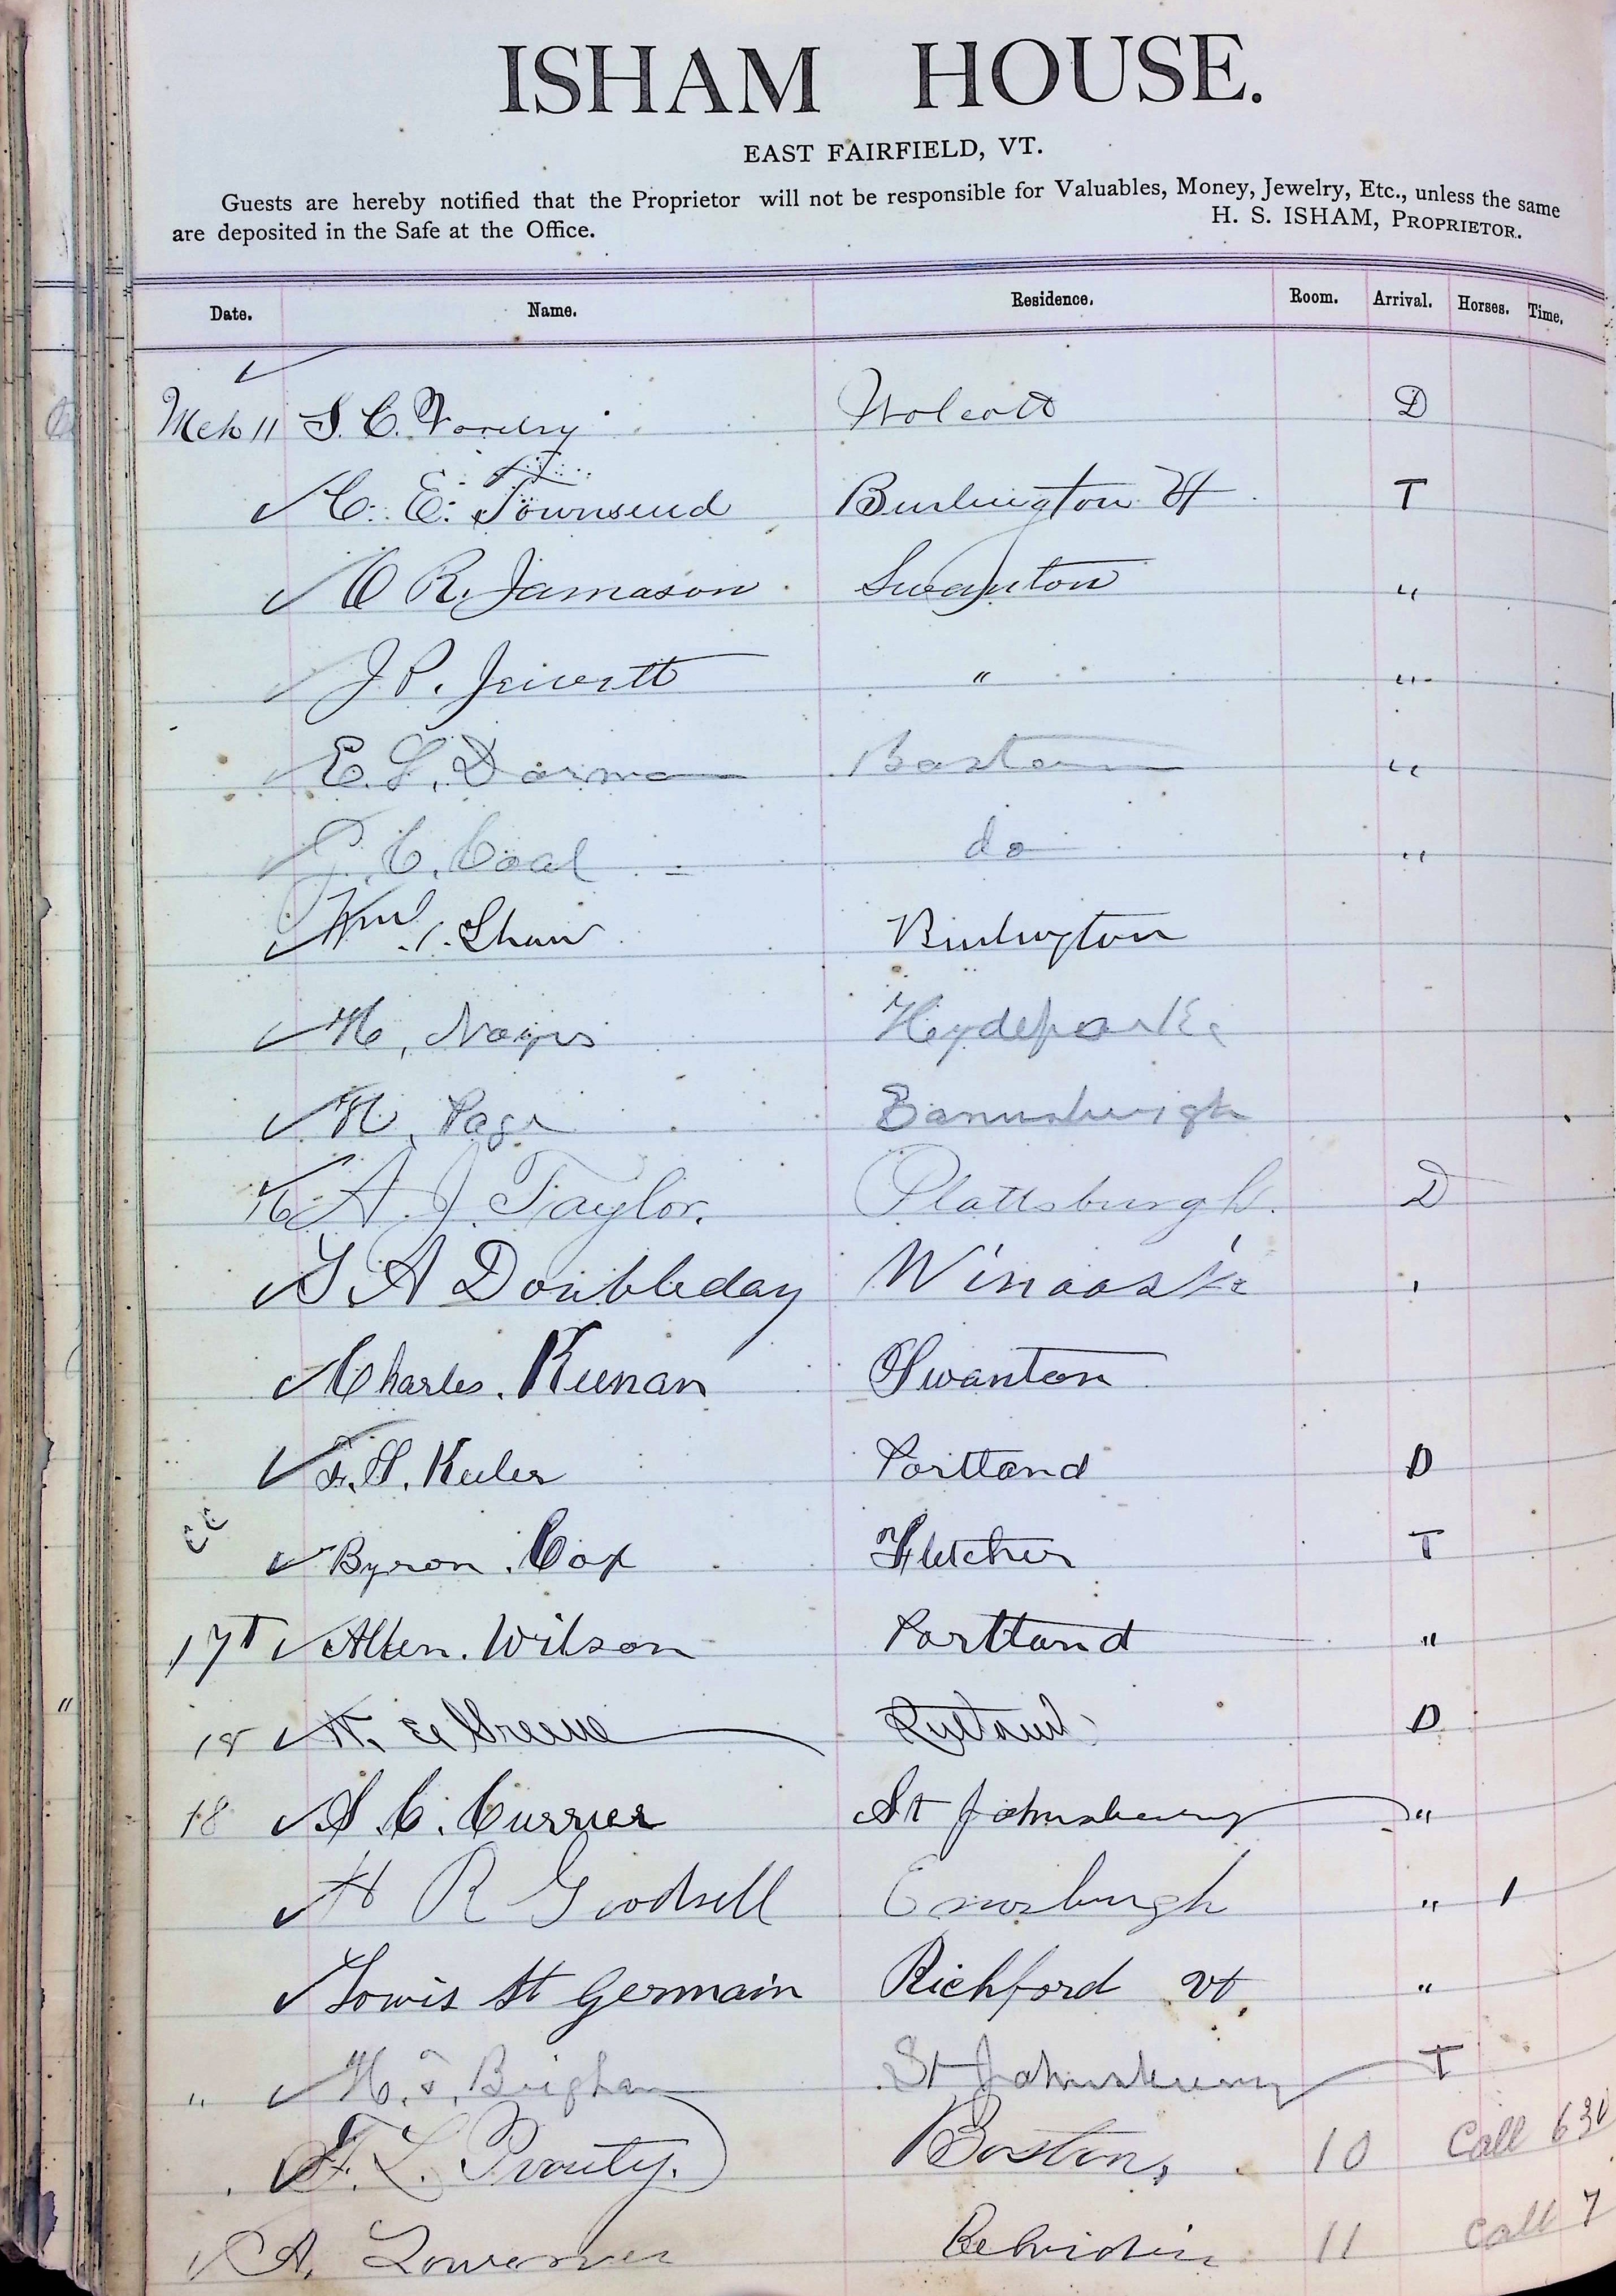 ISHAM HOUSE.
EAST FAIRFIELD, VT.
Guests are hereby notified that the Proprietor will not be responsible for Valuables, Money, Jewelry, Etc., unless the same
are deposited in the Safe at the Office. H. S. ISHAM, PROPRIETOR.
Date. Name. Residence. Room. Arrival. Horses. Time.
Mch 11 S. C. Wolcott D
C. E. Townsend Burlington Vt T
C R. Jamason Swanton "
J P. Jewett " "
E. L. Dorman Boston "
C. Coal do "
Wm Shaw Burlington
H. Noyes Hydepark
N. Page
16 A. J. Taylor. Plattsburgh. D
G A Doubleday Winooski "
Charles. Keenan Swanton
F. S. Keeler Portland D
" Byron. Cox Fletcher T
17 T Allen. Wilson Portland "
18 H. E Greene Rutland D
18 S C. Currier St Johnsbury "
H R Goodsell Enosburgh " 1
Lowis St Germain Richford Vt. "
" H. F. Brigham St Johnsbury T
F. L. Prouty. Boston, 10 Call 630
A. Belvidere 11 Call 7